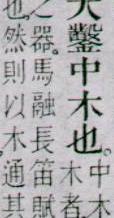 大鑿中木也。
中木
木者
之器。馬融長笛賦
也。然則以木通其